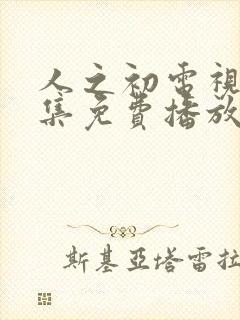 人之初電視
集免費播放
斯基亞塔雷拉